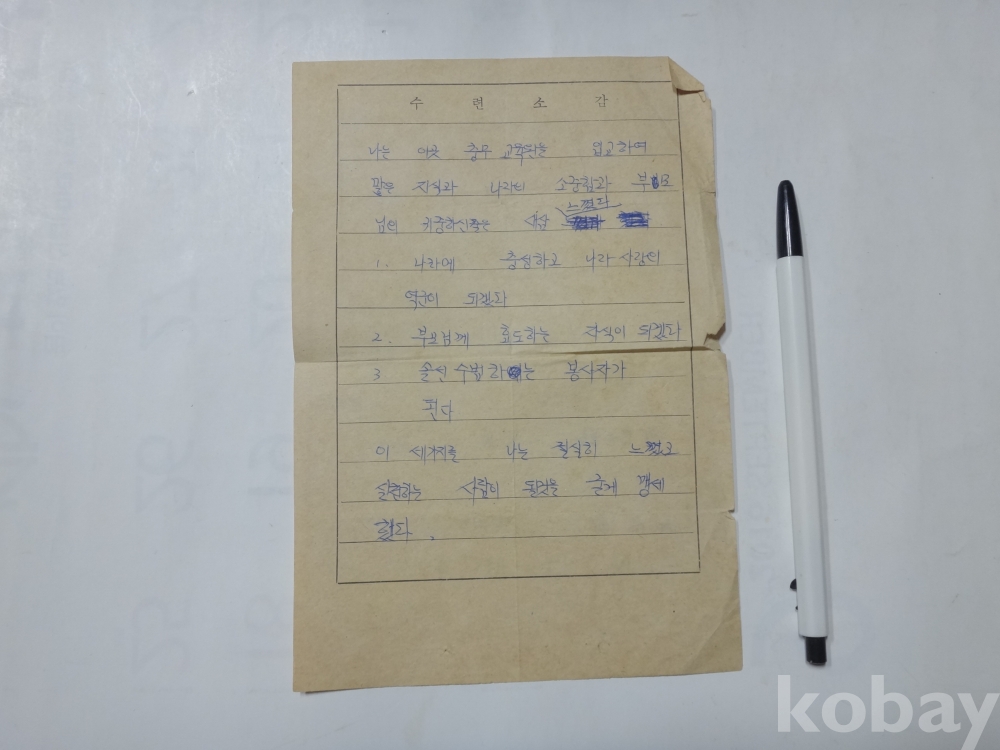 수 련 소 감
나는 이곳 충무 교육원을 입교하여
많은 지식과 나라의 소중함과 부모
님의 귀중하신 새삼 느꼈다
1. 나라에 충성하고 나라 사랑의
역군이 되겠다
2. 부모님께 효도하는 자식이 되겠다
3 솔선 수범하는 봉사자가
된다
이 세가지를 나는 절실히 느꼈고
실천하는 사람이 될것을 굳게 맹세
했다.
kobay